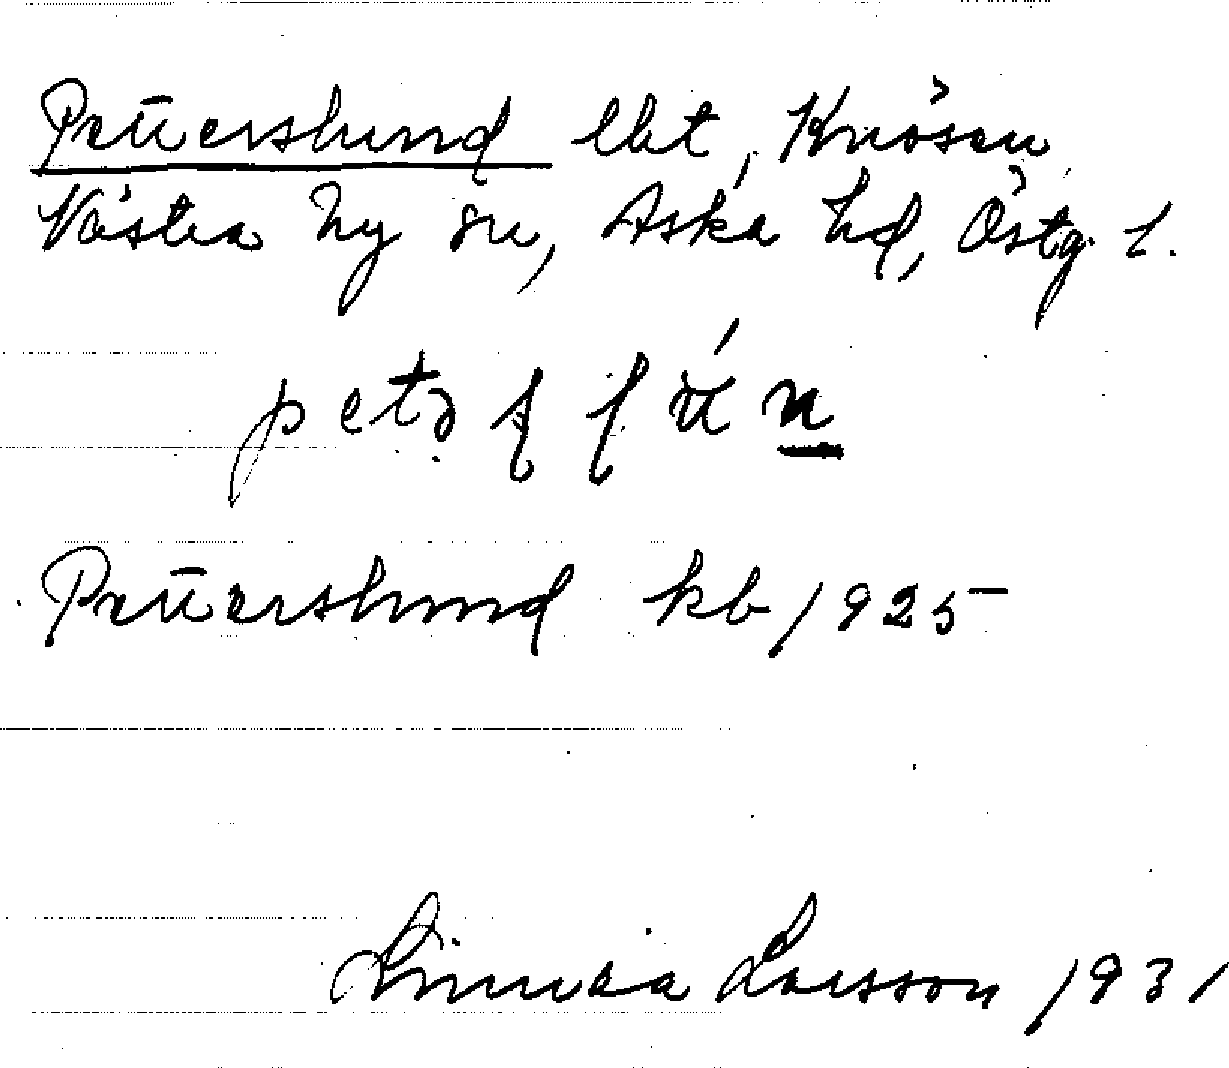 Pettersberg lht, Knösen
Västra Ny sn, Aska hd, Östg. l.
Petterslund kb 1925
Linnea Larsson 1931